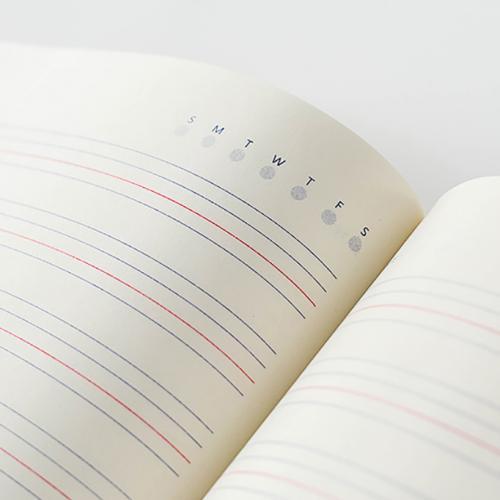 S M T W T F S